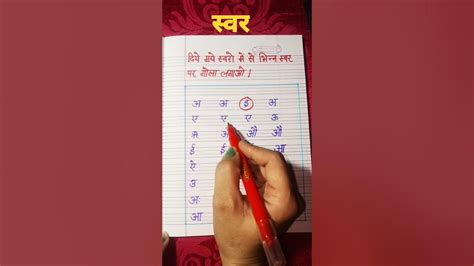 स्वर
दिये गये स्वरो में से भिन्न स्वर
पर गोला लगाओ ।
अ अ इ अ
ए ए ए ऊ
औ औ
ई ई आ
ऐ
उ
अः
आ